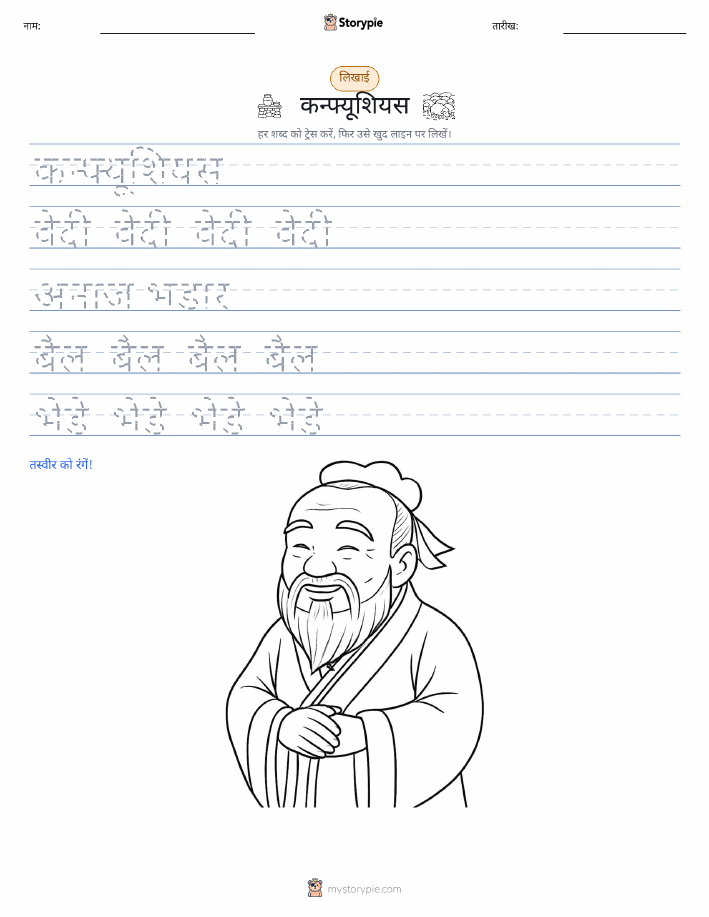 नाम:
Storypie
तारीख:
लिखाई
कन्फ्यूशियस
हर शब्द को ट्रेस करें, फिर उसे खुद लाइन पर लिखें।
कन्फ्यूशियस
वेदी वेदी वेदी वेदी
अनाज भंडार
बैल बैल बैल बैल
भेड़ें भेड़ें भेड़ें भेड़ें
तस्वीर को रंगें!
mystorypie.com